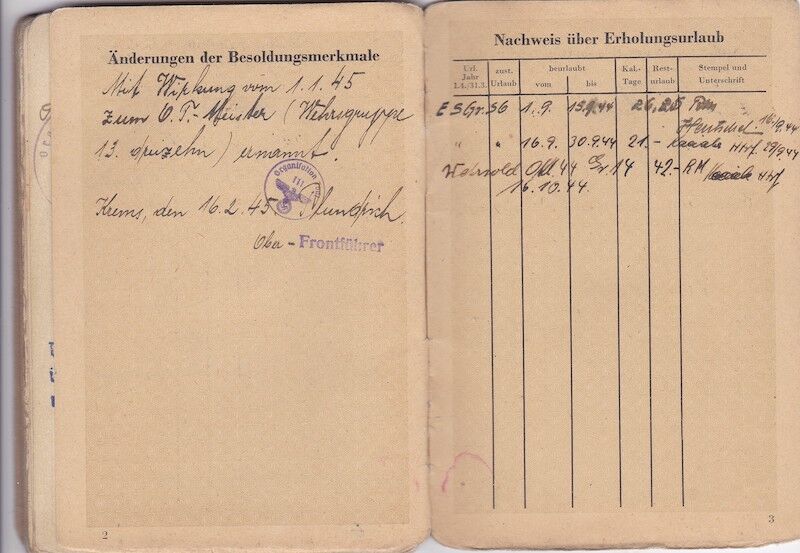 Änderungen der Besoldungsmerkmale
Mit Wirkung vom 1.1.45
zum O.T.-Meister (Wehrsgruppe
13. dreizehn) ernannt.
Organisation
Krems, den 16.2.45.
Oba - Frontführer
2
Nachweis über Erholungsurlaub
Url. Jahr 1.4./31.3.
zust. Urlaub
beurlaubt
vom
bis
Kal.- Tage
Rest- urlaub
Stempel und Unterschrift
E S Gr. S6 1.9. 15.9.44
Hentschel 16/9.44
" " 16.9. 30.9.44 21.- 29/9.44
Wehrsold Okt.44 Gr.14 42.- RM
16.10.44.
3